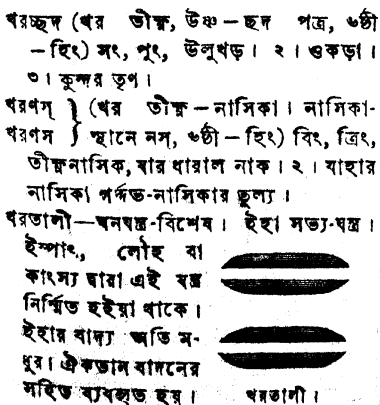 খরচ্ছদ (খর তীক্ষ্ণ, উষ্ণ–ছদ পত্র, ৬ষ্ঠী
–হিং) সং, পুং, উলুখড়। ২। ওকড়া।
৩। কুন্দর তৃণ।
খরণস্ } (খর তীক্ষ্ণ–নাসিকা। নাসিকা-
খরণস } স্থানে নস, ৬ষ্ঠী–হিং) বিং, ত্রিং,
তীক্ষ্ণনাসিক, যার ধারাল নাক। ২। যাহার
নাসিকা গর্দ্দভ-নাসিকার তুল্য।
খরতালী–ঘনযন্ত্র-বিশেষ। ইহা সভ্য-যন্ত্র।
ইস্পাৎ, লৌহ বা
কাংস্য দ্বারা এই যন্ত্র
নির্ম্মিত হইয়া থাকে।
ইহার বাদ্য অতি ম-
ধুর। ঐকতান বাদনের
সহিত ব্যবহৃত হয়।
খরতালী।